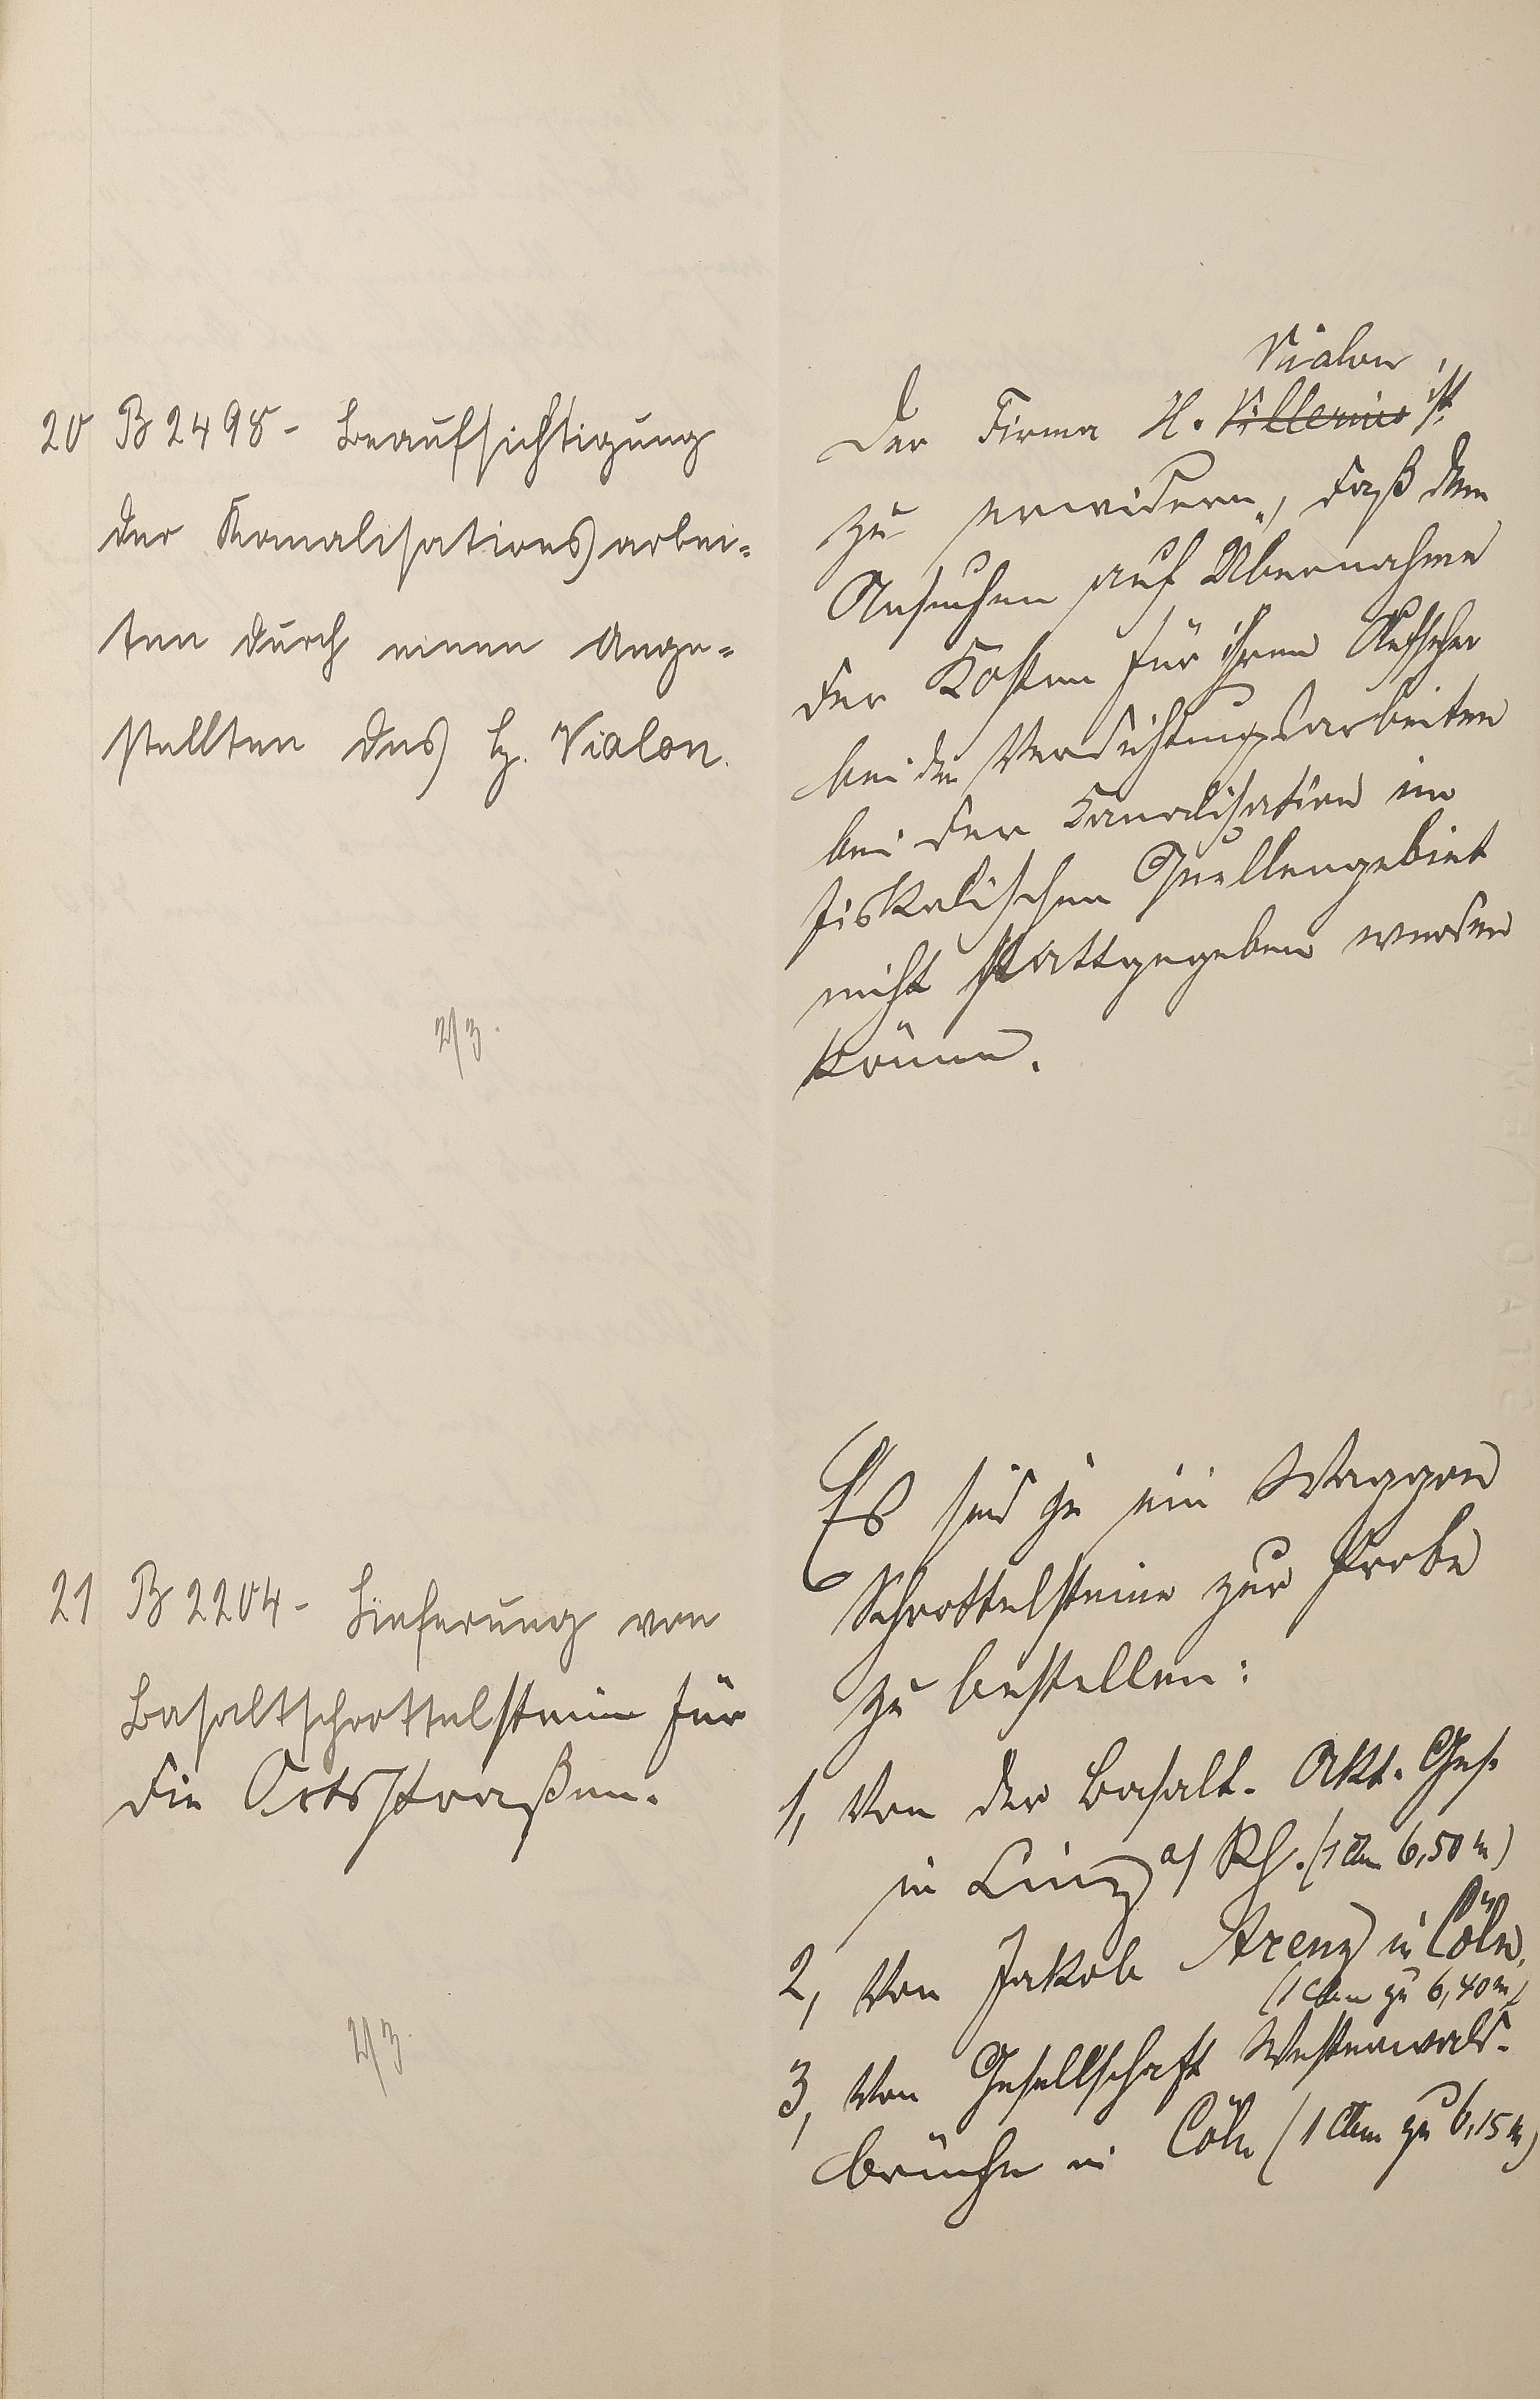 20 B 2498 - Beaufsichtigung
der Kanalisationsarbei=
ten durch einen Ange=
stellten des H. Vialon.
2/3.
Vialon
Der Firma H. Villerius ist
zu erwidern, daß dem
Ansuchen auf Übernahme
der Kosten für ihren Aufseher
bei den Verdichtungsarbeiten
bei der Kanalisation im
fiskalischen Quellengebiet
nicht stattgegeben werden
könne.
21 B 2204 - Lieferung von
Basaltschrottelsteine für
die Ortsstraßen.
2/3.
Es sind je ein Waggon
Schrottelsteine zur Probe
zu bestellen:
1, Von der Basalt. Akt. Ges.
in Linz a/ Rh. (1 cbm 6,50 M)
2, Von Jakob Arenz in Cöln,
(1 cbm zu 6,40 M)
3, Von Gesellschaft Westerwald-
brüche in Cöln (1 cbm zu 6,15 M)